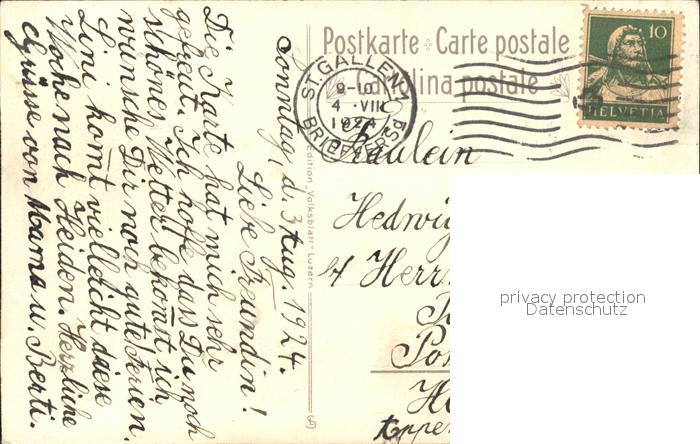 Postkarte · Carte postale
Cartolina postale
ST. GALLEN 1
8-10
4 · VIII
1924
BRIEFVERSD
10
HELVETIA
Sonntag, d. 3 Aug. 1924.
Liebe Freundin!
Die Karte hat mich sehr
gefreut. Ich hoffe dass Du noch
schönes Wetter bekomst ich
wünsche Dir noch gute Ferien.
Lini komt vielleicht diese
Woche nach Heiden. Herzliche
Grüsse von Mama u. Berti.
Edition „Volksblatt“ Luzern
Fräulein
Hedwig
Herr
Appen
privacy protection
Datenschutz